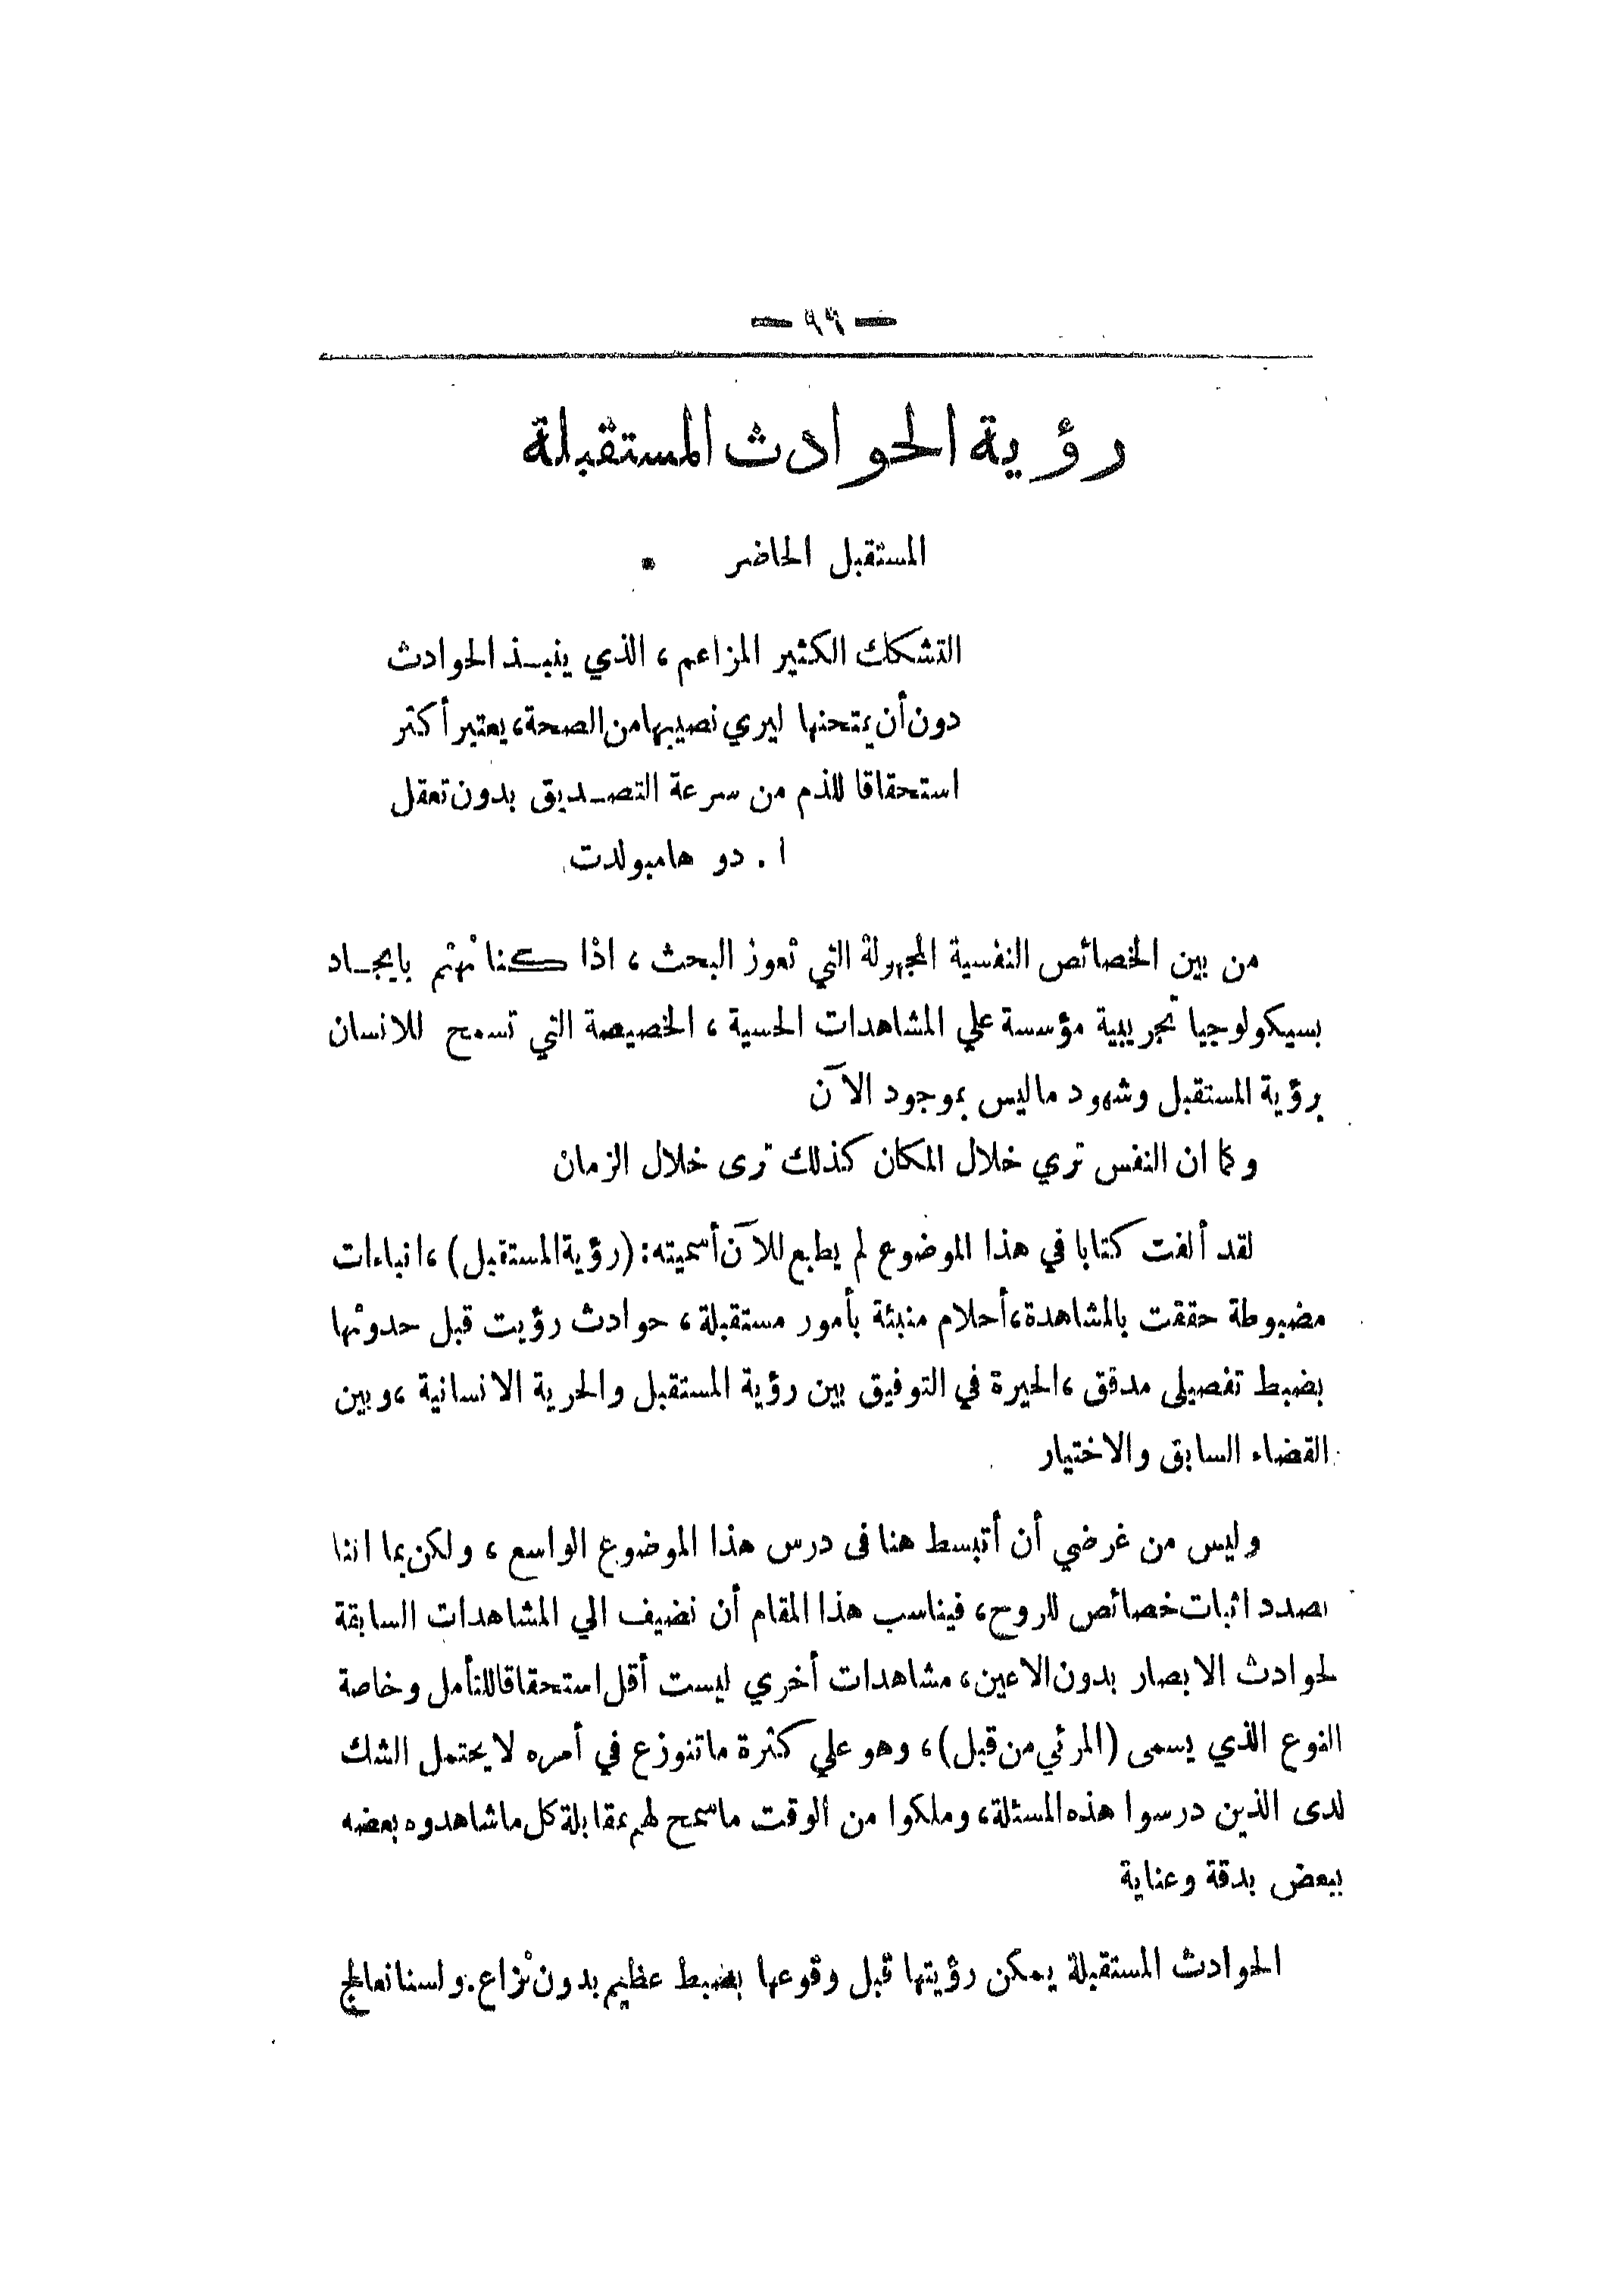 — ٩٩ —
رؤية الحوادث المستقبلة
المستقبل الحاضر •
التشكك الكثير المزاعم، الذي ينبـذ الحوادث
دون أن يمتحنها ليري نصيبها من الصحة، يعتبر أكثر
استحقاقا للذم من سرعة التصـديق بدون تعقل
ا . دو هامبولدت
من بين الخصائص النفسية المجهولة التي تعوز البحث، اذا كنا نهتم بايجـاد
بسيكولوجيا تجريبية مؤسسة علي المشاهدات الحسية، الخصيصة التي تسمح للانسان
برؤية المستقبل وشهود ما ليس بموجود الآن
وكما ان النفس تري خلال المكان كذلك ترى خلال الزمان
لقد ألفت كتابا في هذا الموضوع لم يطبع للآن أسميته: (رؤية المستقبل)، انباءات
مضبوطة حققت بالمشاهدة، أحلام منبئة بأمور مستقبلة، حوادث رؤيت قبل حدوثها
بضبط تفصيلى مدقق، الحيرة في التوفيق بين رؤية المستقبل والحرية الانسانية، وبين
القضاء السابق والاختيار
وليس من غرضي أن أتبسط هنا فى درس هذا الموضوع الواسع، ولكن بما اننا
بصدد اثبات خصائص للروح، فيناسب هذا المقام أن نضيف الي المشاهدات السابقة
لحوادث الابصار بدون الاعين، مشاهدات أخري ليست أقل استحقاقا للتأمل وخاصة
النوع الذي يسمى (المرئي من قبل)، وهو علي كثرة ما تنوزع في أمره لا يحتمل الشك
لدى الذين درسوا هذه المسئلة، وملكوا من الوقت ما سمح لهم بمقابلة كل ما شاهدوه بعضه
ببعض بدقة وعناية
الحوادث المستقبلة يمكن رؤيتها قبل وقوعها بضبط عظيم بدون نزاع. ولسنا نعالج